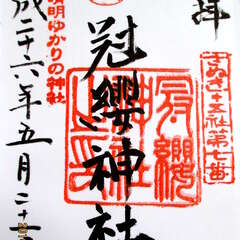 拝
さぬき十五社第七番
冠纓神社
冠纓神社之印
晴明ゆかりの神社
成二十六年五月二十